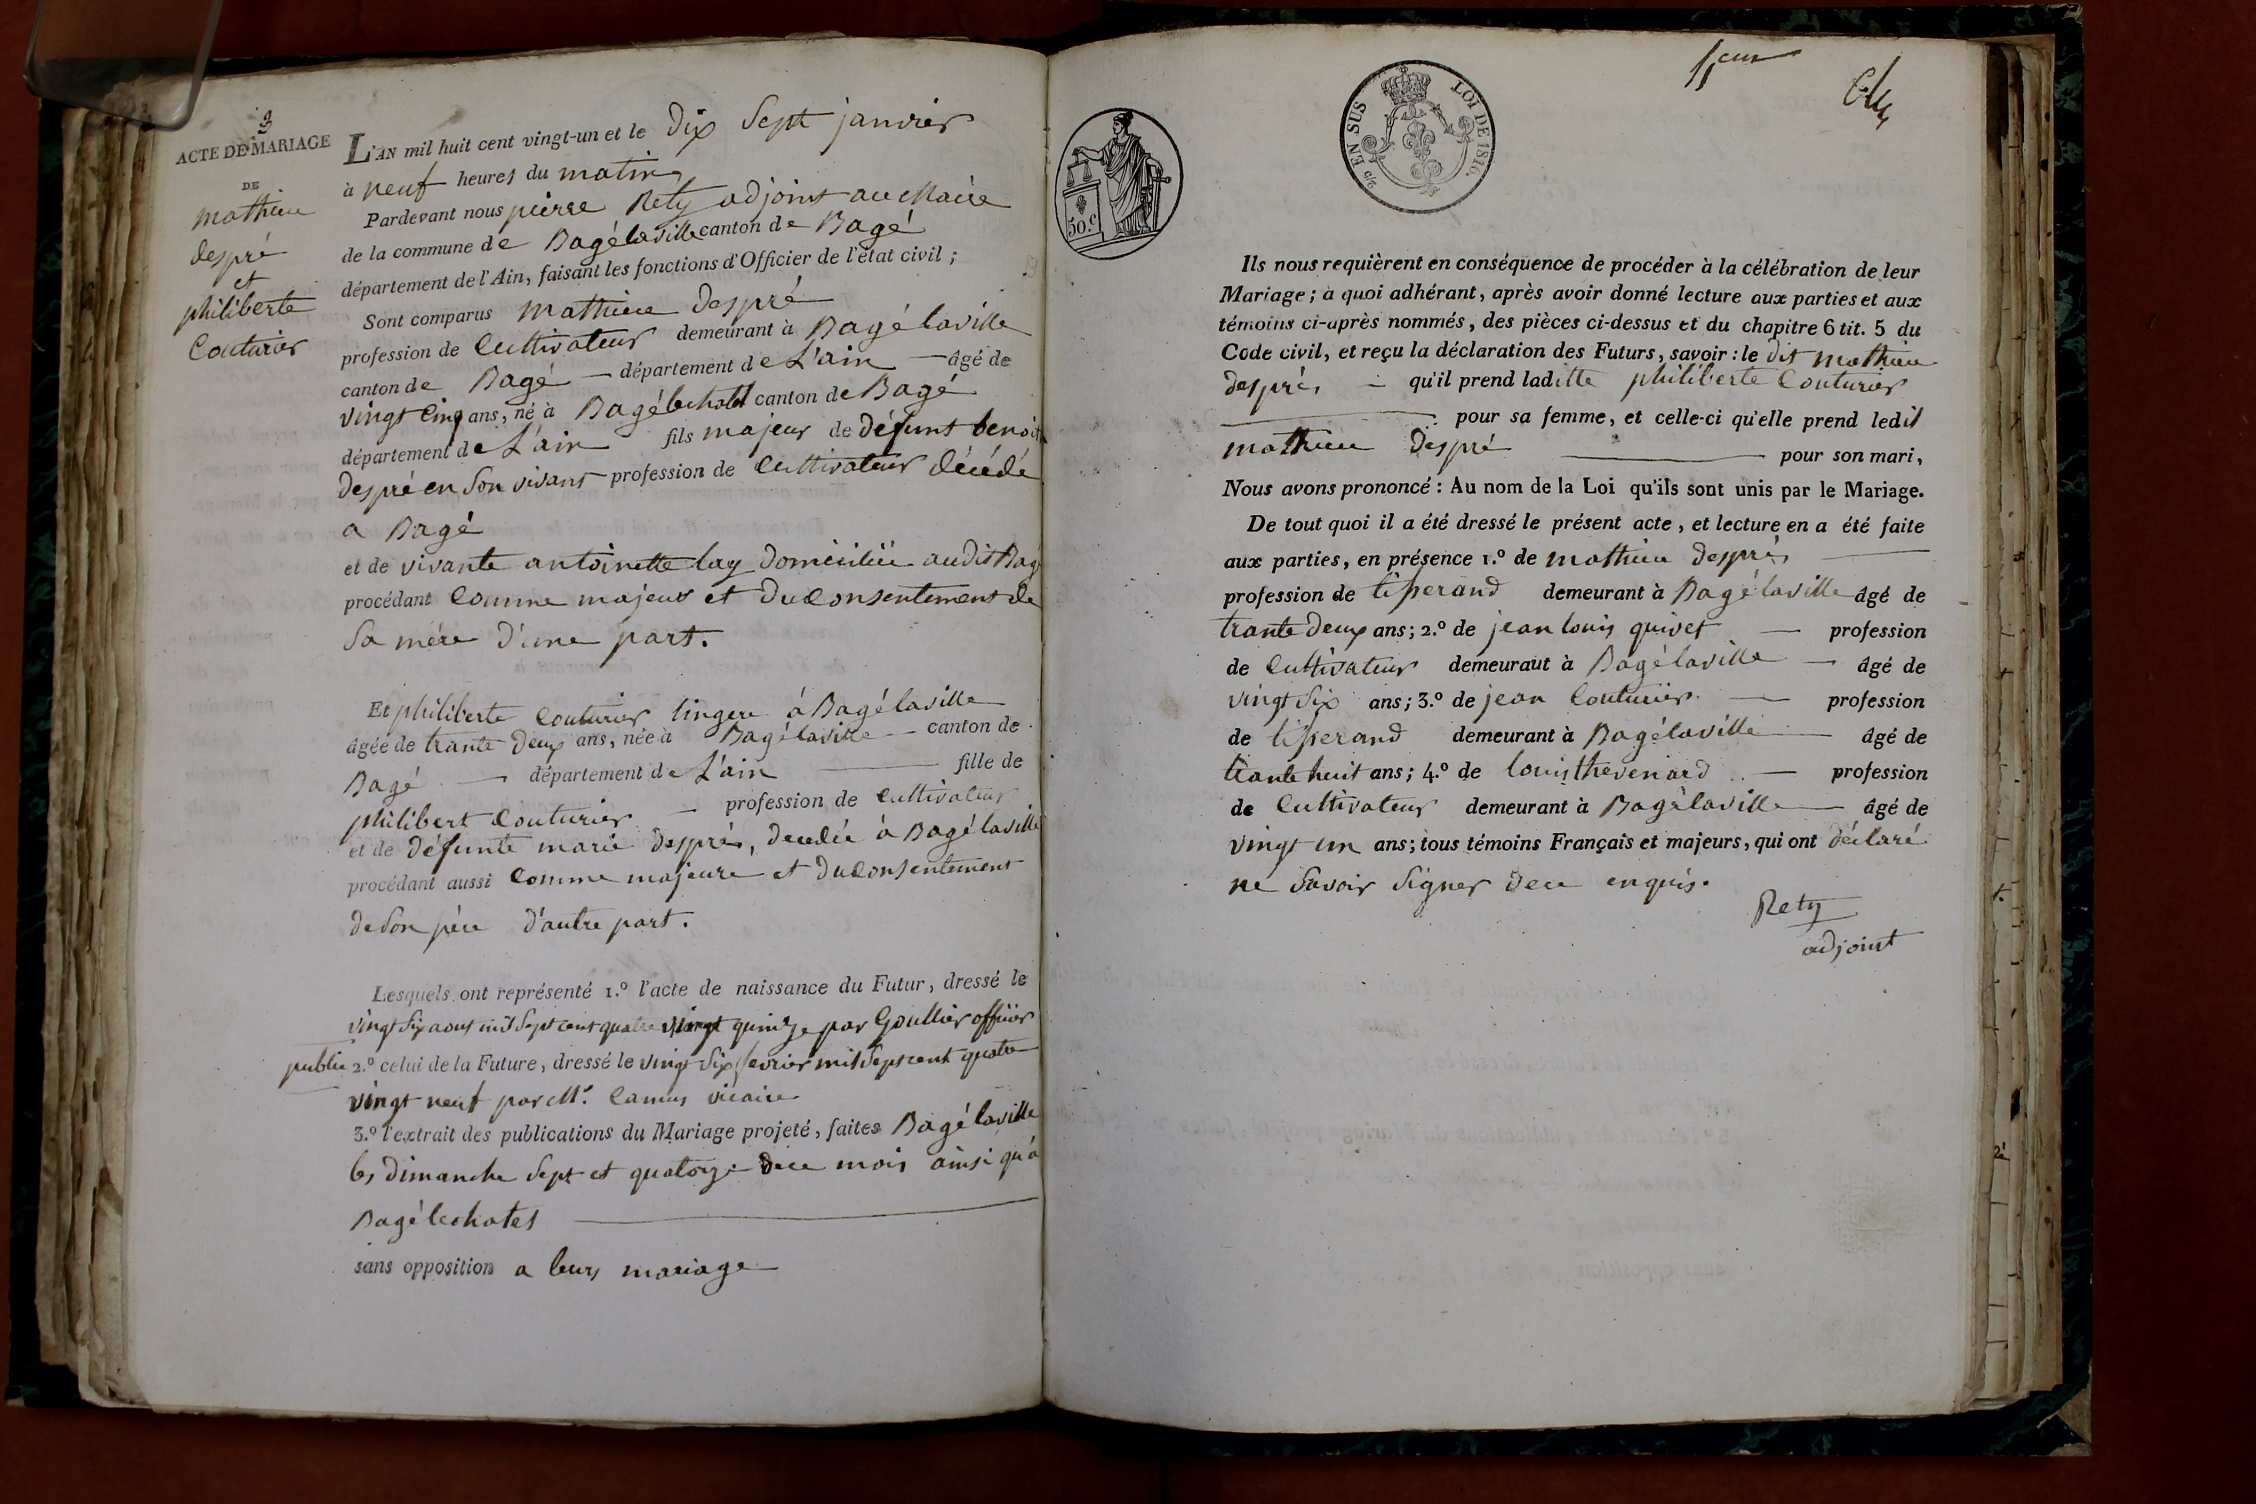 3
ACTE DE MARIAGE
DE
mathieu
despré
et
philiberte
Couturier
L'AN mil huit cent vingt-un et le dix Sept janvier
à neuf heures du matin
Pardevant nous pierre Rety adjoint au Maire
de la commune de Bagélaville canton de Bagé
département de l'Ain, faisant les fonctions d'Officier de l'état civil ;
Sont comparus mathieu despré
profession de Cultivateur demeurant à Bagélaville
canton de Bagé département de L'ain âgé de
vingt Cinq ans, né à Bagélechatel canton de Bagé
département de L'ain fils majeur de défunt benoit
despré en Son vivant profession de Cultivateur décédé
a Bagé
et de vivante antoinette lay domiciliée audit Bagé
procédant Comme majeur et du Consentement de
Sa mère d'une part.
Et philiberte Couturier lingere à Bagélaville
âgée de trante deux ans, née à Bagélaville canton de
Bagé département de L'ain fille de
philibert Couturier profession de Cultivateur
et de défunte marie després, decedée à Bagélaville
procédant aussi Comme majeure et du Consentement
de Son père d'autre part.
Lesquels ont représenté 1.º l'acte de naissance du Futur, dressé le
vingt Six aout mil Sept cent quatre vingt quinze par Goullier officier
public 2.º celui de la Future, dressé le vingt Six fevrier mil Sept cent quatre
vingt neuf par Mr. Camus vicaire
3.º l'extrait des publications du Mariage projeté, faites Bagélaville
les dimanche Sept et quatorze de ce mois ainsi qu'a
Bagélechatel
sans opposition a leurs mariage
LOI DE 1816.
EN SUS
c/c
50.c
Ils nous requièrent en conséquence de procéder à la célébration de leur
Mariage ; à quoi adhérant, après avoir donné lecture aux parties et aux
témoins ci-après nommés, des pièces ci-dessus et du chapitre 6 tit. 5 du
Code civil, et reçu la déclaration des Futurs, savoir : le dit mathieu
després qu'il prend laditte philiberte Couturier
pour sa femme, et celle-ci qu'elle prend ledit
mathieu despré pour son mari,
Nous avons prononcé : Au nom de la Loi qu'ils sont unis par le Mariage.
De tout quoi il a été dressé le présent acte, et lecture en a été faite
aux parties, en présence 1.º de mathieu després
profession de tisserand demeurant à Bagélaville âgé de
trante deux ans ; 2.º de jean louis quivet profession
de Cultivateur demeurant à Bagélaville âgé de
vingt Six ans ; 3.º de jean Couturier profession
de tisserand demeurant à Bagélaville âgé de
trante huit ans ; 4.º de louis thevenard profession
de Cultivateur demeurant à Bagélaville âgé de
vingt un ans ; tous témoins Français et majeurs, qui ont déclaré
ne Savoir Signer de ce enquis.
Rety
adjoint